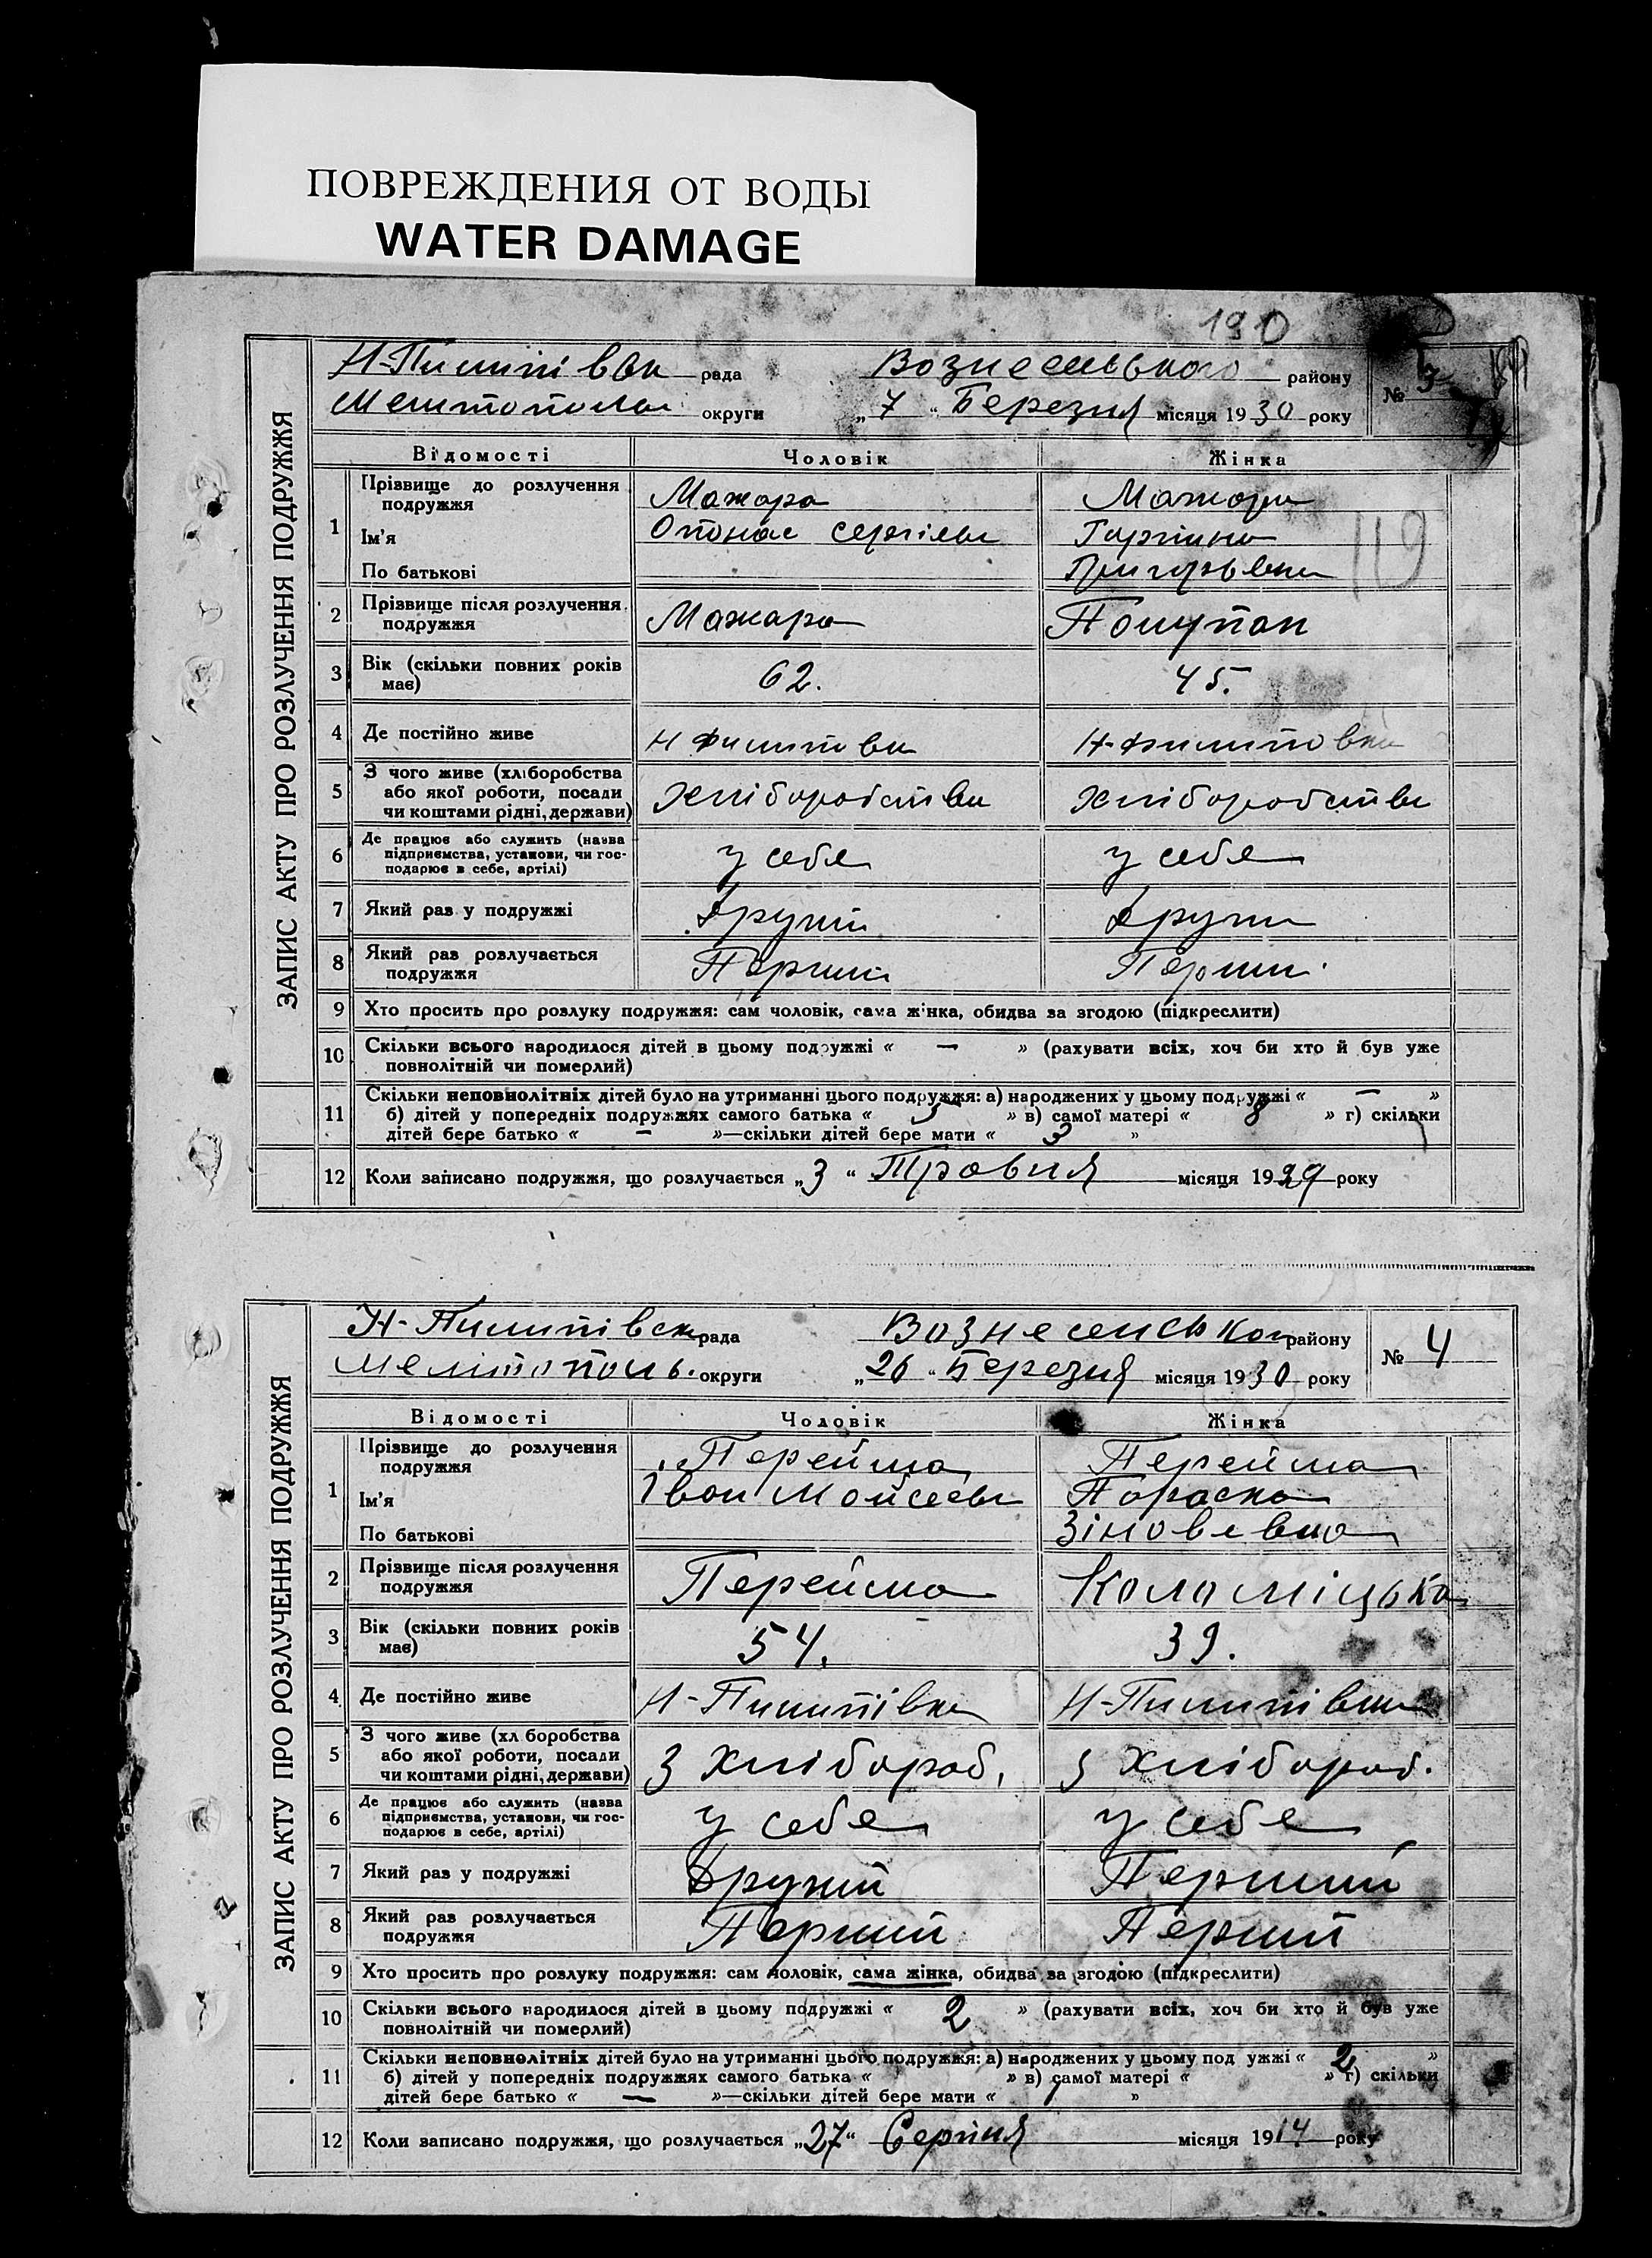 ПОВРЕЖДЕНИЯ ОТ ВОДЫ
WATER DAMAGE
190
ЗАПИС АКТУ ПРО РОЗЛУЧЕННЯ ПОДРУЖЖЯ
Н-Пилипівськ рада Вознесенського району № 3
Мелітополь округи „7“ Березня місяця 1930 року
Відомості Чоловік Жінка
1 Прізвище до розлучення подружжя Мажара Мажара
Ім'я Опонас Сергієв Горпина
119
По батькові Григорьевна
2 Прізвище після розлучення подружжя Мажара
3 Вік (скільки повних років має) 62. 45.
4 Де постійно живе Н Филиповка Н-Филиповка
5 З чого живе (хліборобства або якої роботи, посади чи коштами рідні, держави) Хліборобства Хліборобства
6 Де працює або служить (назва підприємства, установи, чи господарює в себе, артілі) у себе у себе
7 Який раз у подружжі Другий Други
8 Який раз розлучається подружжя Перший Перши
9 Хто просить про розлуку подружжя: сам чоловік, сама жінка, обидва за згодою (підкреслити)
10 Скільки всього народилося дітей в цьому подружжі « — » (рахувати всіх, хоч би хто й був уже
повнолітній чи померлий)
11 Скільки неповнолітніх дітей було на утриманні цього подружжя: а) народжених у цьому подружжі « — »
б) дітей у попередніх подружжях самого батька « 5 » в) самої матері « » г) скільки
дітей бере батько « — »—скільки дітей бере мати « 3 »
12 Коли записано подружжя, що розлучається „3“ Травня місяця 1929 року
ЗАПИС АКТУ ПРО РОЗЛУЧЕННЯ ПОДРУЖЖЯ
Н-Пилипівськ рада Вознесенського району № 4
Мелітополь. округи „26“ Березня місяця 1930 року
Відомості Чоловік Жінка
1 Прізвище до розлучення подружжя Перейма Перейма
Ім'я Іван Мойсеев Параска
По батькові Зіновевна
2 Прізвище після розлучення подружжя Перейма Коломіцька
3 Вік (скільки повних років має) 54. 39.
4 Де постійно живе Н-Пилипівка Н-Пилипівка
5 З чого живе (хл боробства або якої роботи, посади чи коштами рідні, держави) З Хлібороб. З Хлібороб.
6 Де працює або служить (назва підприємства, установи, чи господарює в себе, артілі) у себе у себе
7 Який раз у подружжі Другий Перший
8 Який раз розлучається подружжя Перший Перший
9 Хто просить про розлуку подружжя: сам чоловік, сама жінка, обидва за згодою (підкреслити)
10 Скільки всього народилося дітей в цьому подружжі « 2 » (рахувати всіх, хоч би хто й був уже
повнолітній чи померлий)
11 Скільки неповнолітніх дітей було на утриманні цього подружжя: а) народжених у цьому под ужжі « 2 »
б) дітей у попередніх подружжях самого батька « » в) самої матері « » г) скільки
дітей бере батько « — »—скільки дітей бере мати « »
12 Коли записано подружжя, що розлучається „27“ Серпня місяця 1914 року